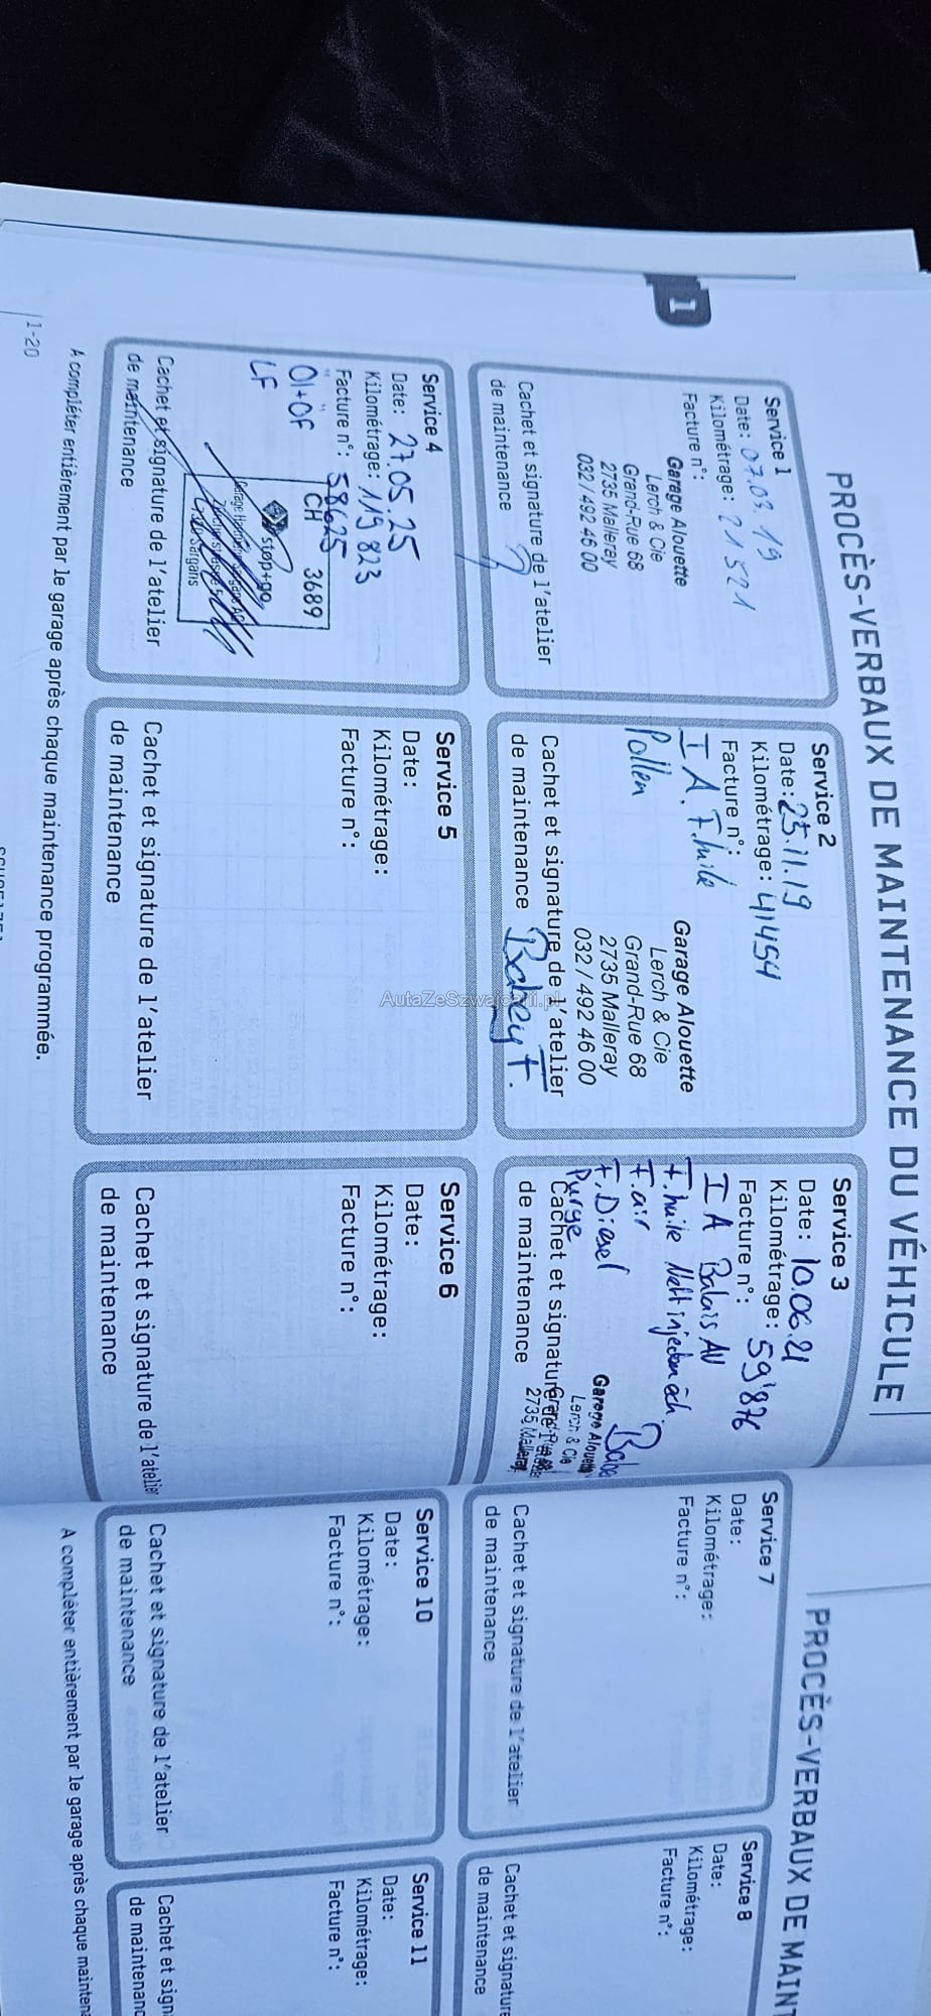 1
PROCÈS-VERBAUX DE MAINTENANCE DU VÉHICULE
Service 1
Date: 07.03.19
Kilométrage: 21521
Facture n°:
Garage Alouette
Lerch & Cie
Grand-Rue 68
2735 Malleray
032 / 492 46 00
Cachet et signature de l'atelier
de maintenance
Service 2
Date: 25.11.19
Kilométrage: 41454
Facture n°:
I A. F. huile
Pollen
Garage Alouette
Lerch & Cie
Grand-Rue 68
2735 Malleray
032 / 492 46 00
Cachet et signature de l'atelier
de maintenance
Service 3
Date: 10.06.21
Kilométrage: 59'876
Facture n°:
I A Balais AV
F. huile Nett injection éch.
F. air
F. Diesel
Purge
Garage Alouette
Lerch & Cie
Grand-Rue 68
2735 Malleray
Cachet et signature de l'atelier
de maintenance
Service 4
Date: 27.05.25
Kilométrage: 119 823
Facture n°: 58625
Öl+ÖF
LF
CH 3689
stop+go
Sargans
Cachet et signature de l'atelier
de maintenance
Service 5
Date:
Kilométrage:
Facture n°:
Cachet et signature de l'atelier
de maintenance
Service 6
Date:
Kilométrage:
Facture n°:
Cachet et signature de l'atelier
de maintenance
A compléter entièrement par le garage après chaque maintenance programmée.
1-20
PROCÈS-VERBAUX DE MAINT
Service 7
Date:
Kilométrage:
Facture n°:
Cachet et signature de l'atelier
de maintenance
Service 8
Date:
Kilométrage:
Facture n°:
Cachet et signature
de maintenance
Service 10
Date:
Kilométrage:
Facture n°:
Cachet et signature de l'atelier
de maintenance
Service 11
Date:
Kilométrage:
Facture n°:
Cachet et sign
de maintenanc
A compléter entièrement par le garage après chaque mainten
AutaZeSzwajcarii.pl